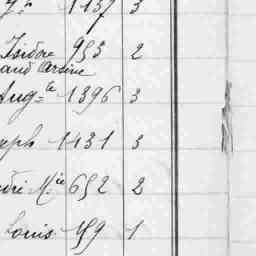 1437 3
Isidore 953 2
and Arsine
Aug.te 1396 3
eph 1431 3
dré M.ie 652 2
Louis 159 1